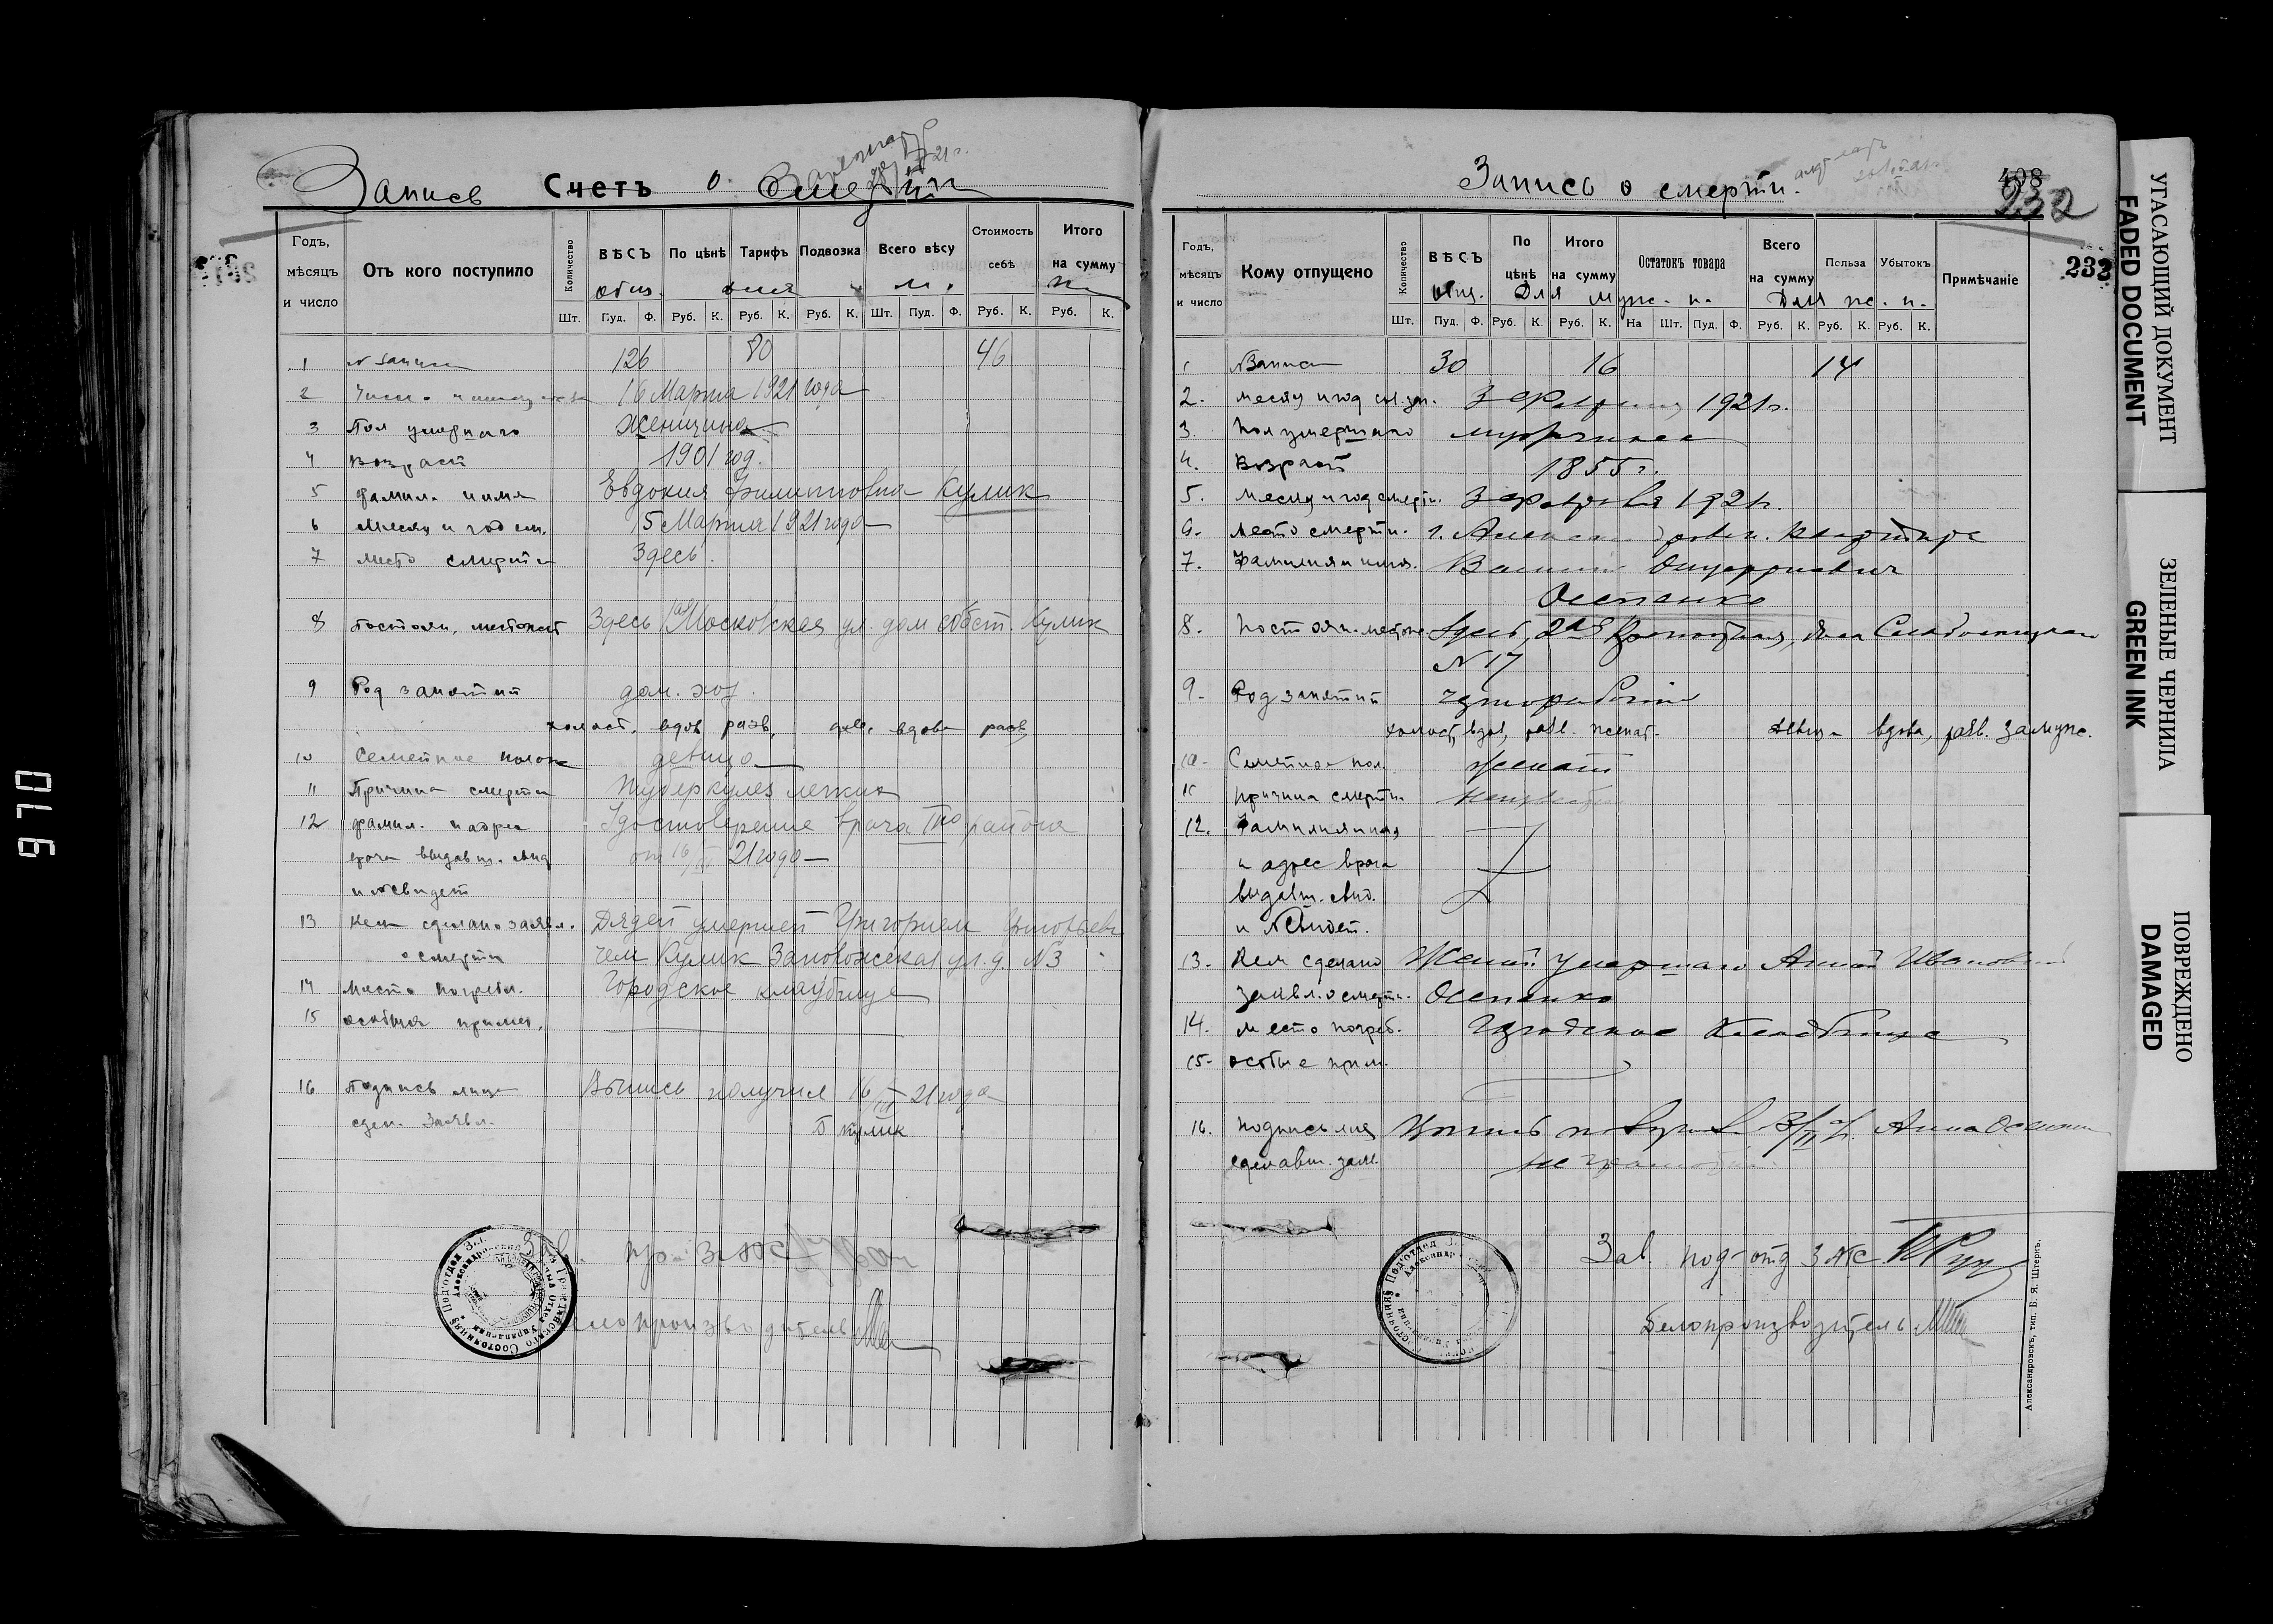 Запись Счетъ о Смерти
Годъ, мѣсяцъ и число
Отъ кого поступило
Количество
ВѢСЪ По цѣнѣ Тарифъ Подвозка Всего вѣсу Стоимость себѣ Итого на сумму
общ. для м.
Шт. Пуд. Ф. Руб. К. Руб. К. Руб. К. Шт. Пуд. Ф. Руб. К. Руб. К.
1 N записи 126 80 46
2 16 Марта 1921 года
3 Пол умершаго женщина
4 Возраст 1901 год.
5 фамил. и имя Евдокия Филипповна Кулик
6 Месяц и год см. 15 Марта 1921 года
7 место смерти Здесь.
8 постоян. местожит Здесь Московская ул. дом собст. Кулик
9 Род занятий дом. хоз.
холост. вдов. разв. дев. вдова разв.
10 Семейное полож девица
11 Причина смерти Туберкулез легких
12 фамил. и адрес Удостоверение врача III го района
врача выдавш. свид от 16/III 21 года
и N свидет
13 Кем сделано заявл. Дядей умершей Григорием Григорьеви
о смерти чем Кулик Запорожская ул. д. N 3
14 Место погребл. Городское кладбище
15 особыя примеч.
16 Подпись лица Выпись получил 16/III 21 года
сдел. Заявл. Кулик
Зав.
Делопроизводитель
Запись о смерти.
408
232
232
Годъ, мѣсяцъ и число
Кому отпущено
Количество
ВѢСЪ По цѣнѣ Итого на сумму Остатокъ товара Всего на сумму Польза Убытокъ Примѣчаніе
общ. Для муж. п. Для ж. п.
Шт. Пуд. Ф. Руб. К. Руб. К. На Шт. Пуд. Ф. Руб. К. Руб. К. Руб. К.
1 N Записи 30 16 14
2. месяц и год сост. зап. 3 февраля 1921 г.
3. Пол умершаго мужчина
4. Возраст 1855 г.
5. Месяц и год смерти. 3 февраля 1921 г.
6. место смерти. г. Александровск. квартира
7. Фамилия и имя. Онуфриевич
Осипенко
8. Постоян. местож. Здесь, 2ая
N 17
9. Род занятий чернорабочий
холост, вдов, разв. женат. девица вдова, разв. замуж.
10. Семейное пол. женат
11 причина смерти неизвестна
12. Фамилия имя
и адрес врача
выдавш. свид.
и N свидет.
13. Кем сделано Женой умершаго Анной Ивановной
заявл. о смерти. Осипенко
14. место погреб. Городское Кладбище
15. особые прим.
16. подпись лица Анна Осипенко
сделавш. заяв. неграмотна
Зав. под-отд ЗАГС
Делопроизводитель
Александровскъ, тип. Б. Я. Штернъ.
УГАСАЮЩИЙ ДОКУМЕНТ
FADED DOCUMENT
ЗЕЛЕНЫЕ ЧЕРНИЛА
GREEN INK
ПОВРЕЖДЕНО
DAMAGED